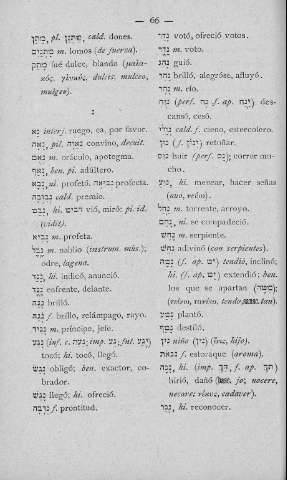 — 66 —
מַתָּן, pl. מַתָּנִן, cald. dones.
מָתְנַיִם m. lomos (de fuerza).
מָתַק fué dulce, blando (μαλα-
κός, γλυκύς, dulcis, mulceo,
mulgeo).
נ
נָא interj. ruego, ea, por favor.
נָאָה, pil. נַאֲוָה convino, decuit.
נְאֻם m. oráculo, apotegma.
נָאַף, ben. pi. adúltero.
נָבָא, ni. profetó. נְבִיאָה profecta.
נְבִזְבָּה cald. premio.
נָבַט, hi. הִבִּיט vió, miró: pi. id.
(vidit).
נָבִיא m. profeta.
נֵבֶל m. nablio (instrum. mús.);
odre, lagena.
נָגַד, hi. indicó, anunció.
נֶגֶד enfrente, delante.
נָגַהּ brilló.
נֹגַהּ f. brillo, relámpago, rayo.
נָגִיד m. príncipe, jefe.
נָגַע (inf. c. גַּעַת; imp. גַּע; fut. יִגַּע)
tocó; hi. tocó, llegó.
נָגַשׂ obligó; ben. exactor, co-
brador.
נָגַשׁ llegó; hi. ofreció.
נְדָבָה f. prontitud.
נָדַר votó, ofreció votos.
נֶדֶר m. voto.
נָהַג guió.
נָהַר brilló, alegróse, afluyó.
נָהָר m. río.
נוּחַ (perf. נָח, f. ap. וַיָּנַח) des-
cansó, cesó.
נְוָלִי cald. f. cieno, estercolero.
נוּן (f. יִנּוֹן) retoñar.
נוּס huir (perf. נָס); correr mu-
cho.
נוּעַ, hi. menear, hacer señas
(nuo, νεύω).
נַחַל m. torrente, arroyo.
נָחַם, ni. se compadeció.
נָחָשׁ m. serpiente.
נָחַשׁ adivinó (con serpientes).
נָטָה (f. ap. יֵט) tendió, inclinó;
hi. (f. ap. יַט) extendió; ben.
los que se apartan (מַטֶּה);
(τείνω, τανύω, tendo, tan).
נָטַע plantó.
נָטַף destiló.
נִין niño (ἶνις, hijo).
נְכֹאת f. estoraque (aroma).
נָכָה, hi. (imp. הַךְ, f. ap. יַךְ)
hirió, dañó (jo; nocere,
necare; νέκυς, cadaver).
נָכַר, hi. reconocer.